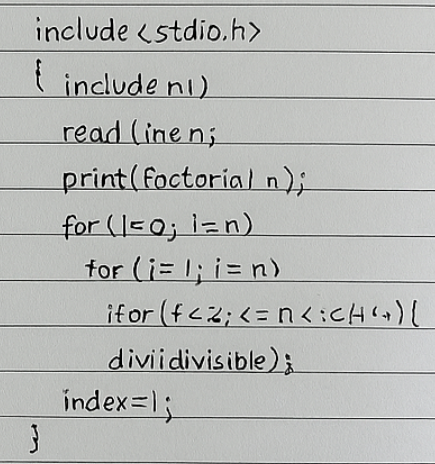 include <stdio.h>
{ include n1)
read (ine n;
print(foctorial n);
for (l=0; i=n)
for (i=1; i=n)
ifor (f<2; <= n <
diviidivisible);
index=1;
}